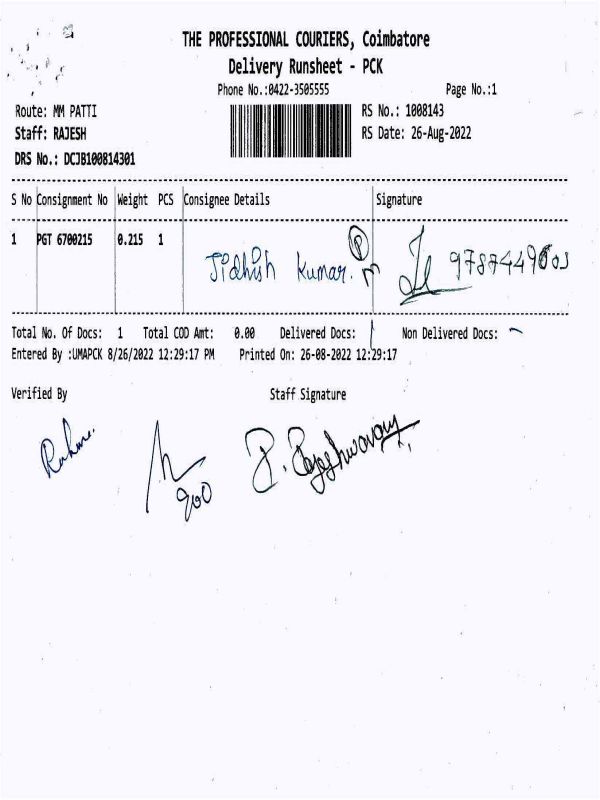 THE PROFESSIONAL COURIERS, Coimbatore
Delivery Runsheet - PCK
Phone No.:0422-3505555 Page No.:1
Route: MM PATTI RS No.: 1008143
Staff: RAJESH RS Date: 26-Aug-2022
DRS No.: DCJB100814301
S No Consignment No Weight PCS Consignee Details Signature
1 PGT 6700215 0.215 1 Jidhish Kumar. P
Total No. Of Docs: 1 Total COD Amt: 0.00 Delivered Docs: 1 Non Delivered Docs: -
Entered By :UMAPCK 8/26/2022 12:29:17 PM Printed On: 26-08-2022 12:29:17
Verified By Staff Signature
P. Rajeshwaran